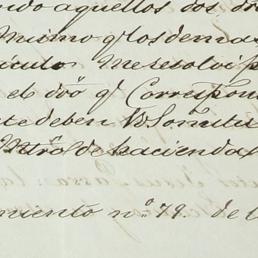 ndo aquellos dos dro
Mismo q los demas
iculo. Me resolvi p
el dro q Correspon
te deben
Mtro de hacienda
miento no. 79. de l